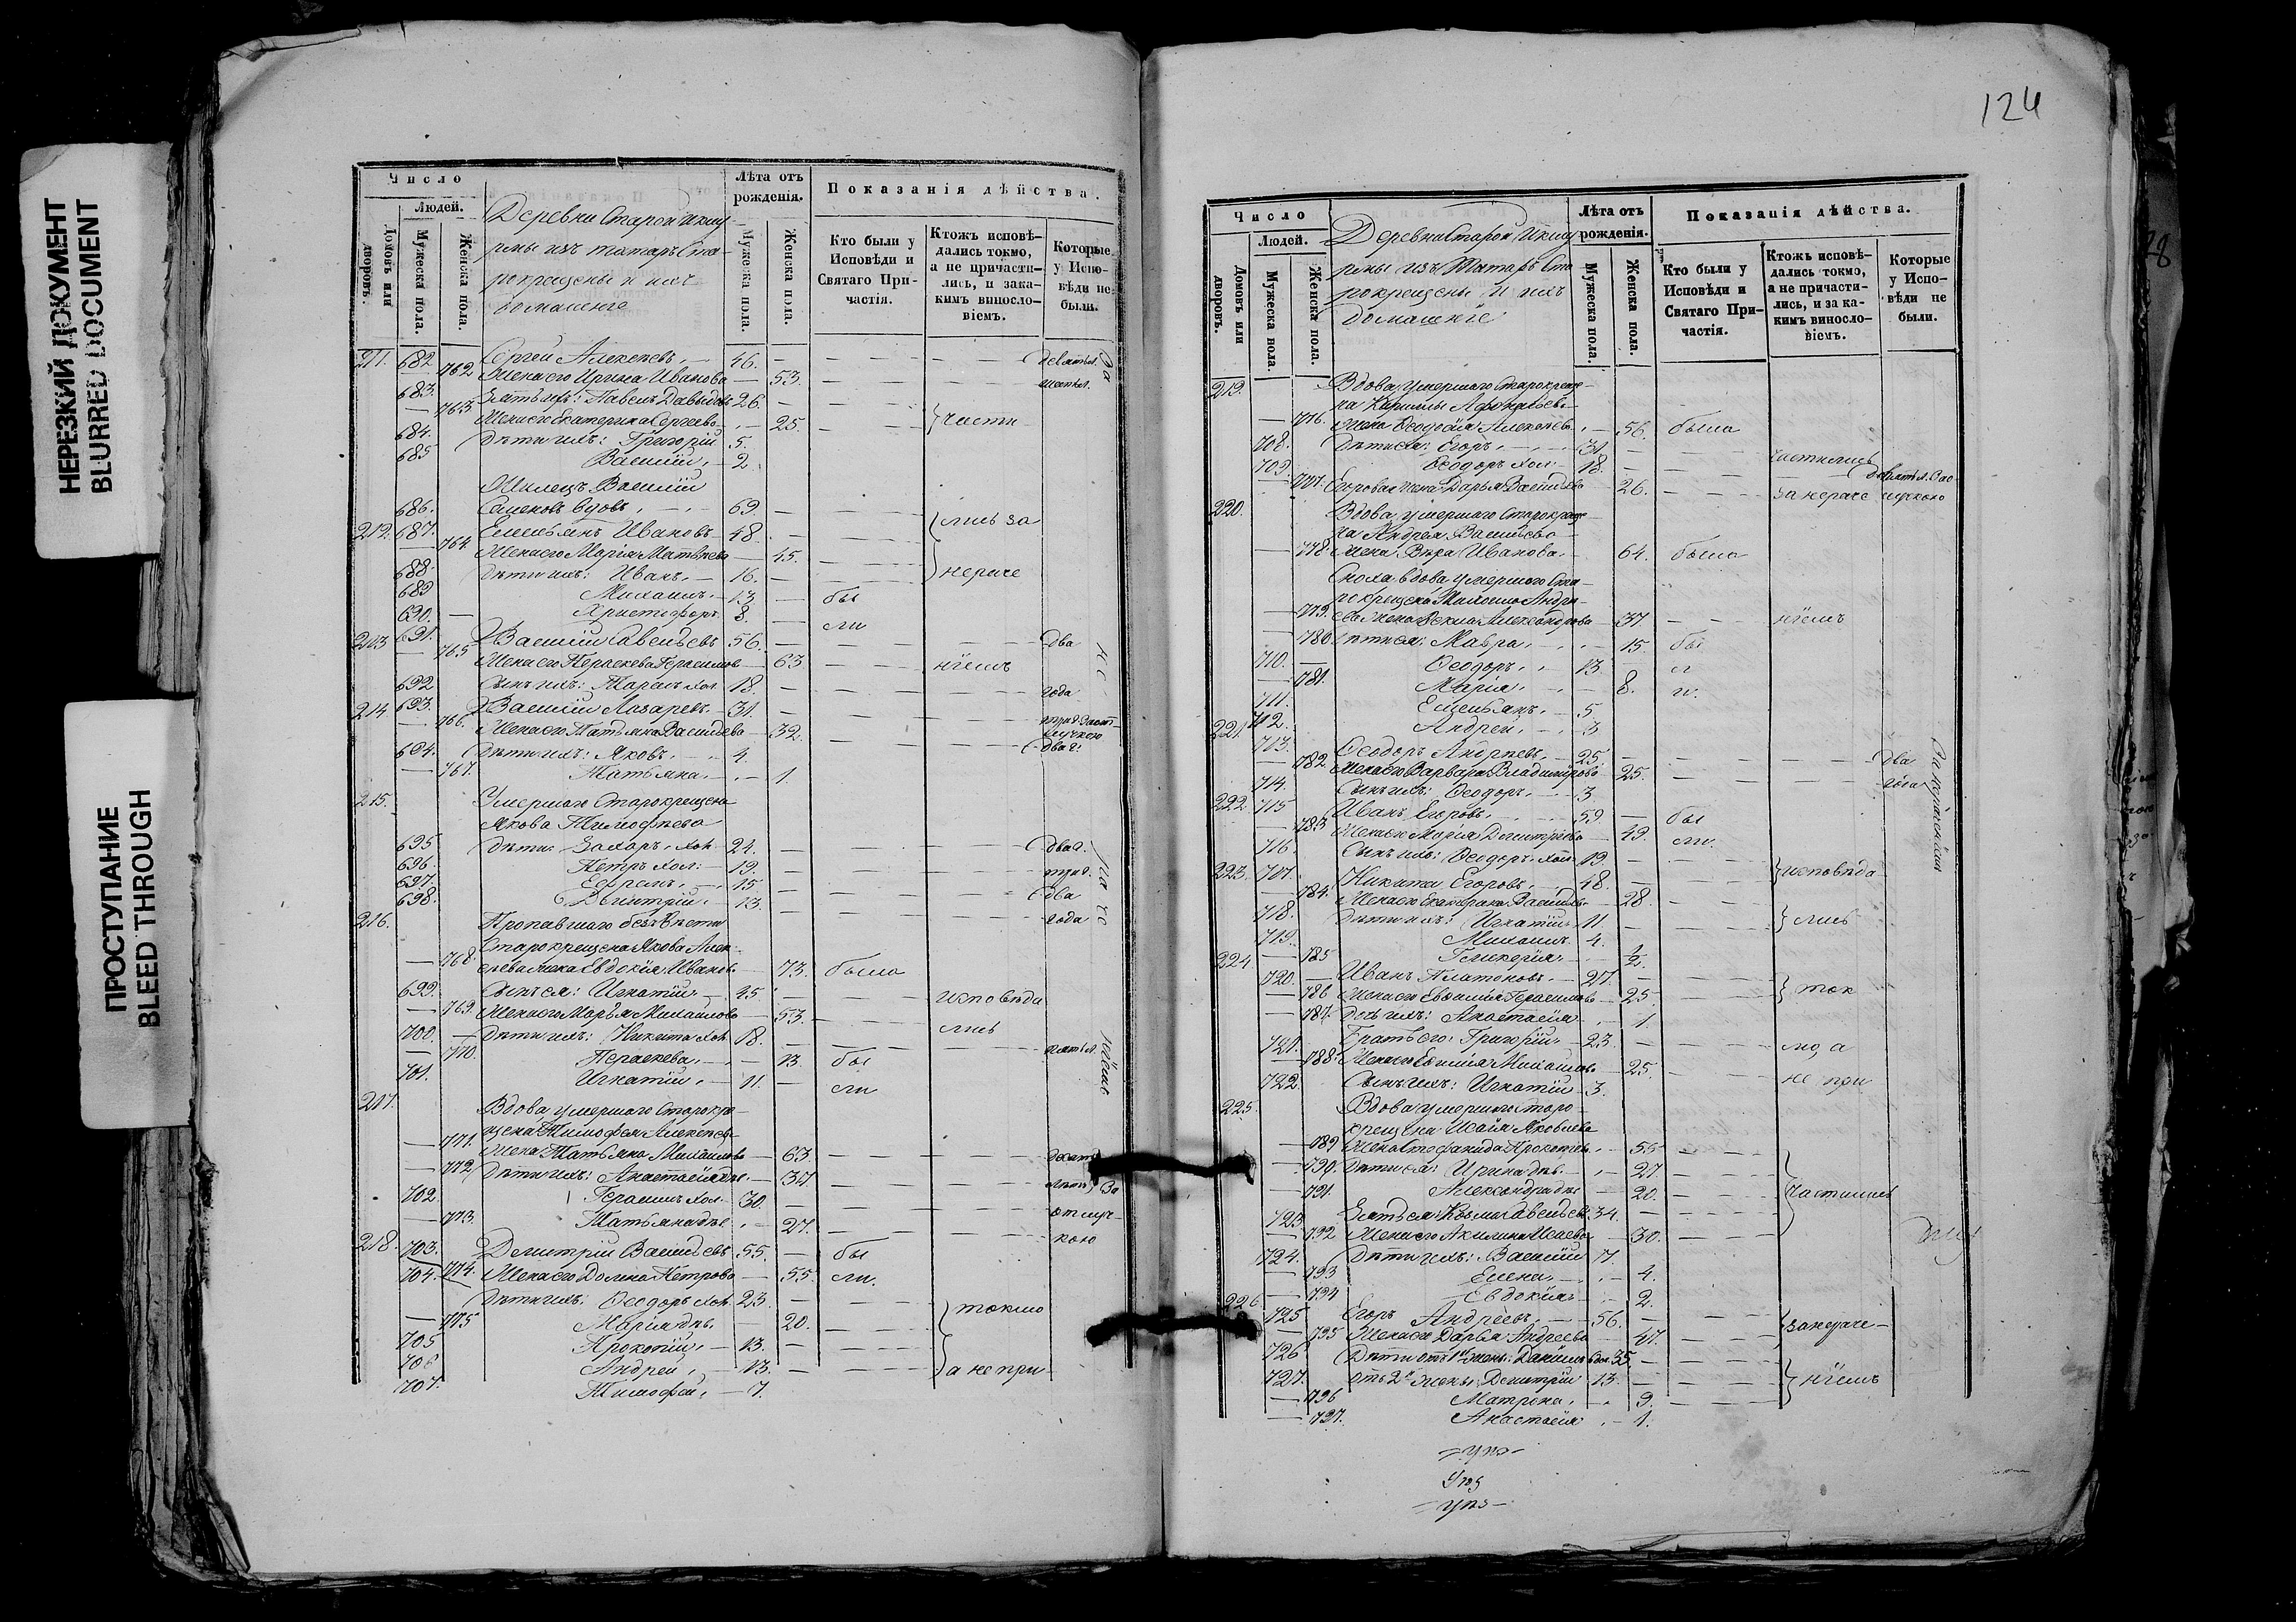 НЕРЕЗКИЙ ДОКУМЕНТ
BLURRED DOCUMENT
ПРОСТУПАНИЕ
BLEED THROUGH
Число
Людей.
Домовъ или дворовъ.
Мужеска пола.
Женска пола.
Деревни Старой Икшур
мы изъ татаръ Ста-
рокрещены и ихъ
домашніе
Лѣта отъ рожденія.
Мужеска пола.
Женска пола.
Показанія дѣйства.
Кто были у Исповѣди и Святаго Причастія.
Ктожъ исповѣдались токмо, а не причастились, и за какимъ винословіемъ.
Которые у Исповѣди не были.
211. 682 Сергей Алексѣевъ 46.
762 Жена его Ирина Иванова 53.
683. Зять ихъ: Павелъ Давыдовъ 26.
763 Жена его Екатерина Сергеева 25. части
684. Дѣти ихъ: Григорій 5.
685 Василій 2.
Жилецъ Василій
686. Семеновъ вдовъ 69 лись за
212. 687. Емельянъ Ивановъ 48.
764 Жена его Марія Матвѣева 45.
688 Дѣти ихъ: Иванъ 16. нераче
689 Михаилъ 13 бы
690. Христофоръ 8. ли
213 691. Василій Савельевъ 56. два
765 Жена его Параскева Герасимова 63 ніемъ
692 Сынъ ихъ: Тарасъ хол 18. года
214 693. Василій Лазаревъ 31.
766. Жена его Татьяна Васильева 32.
694. Дѣти ихъ: Яковъ 4. два г.
767. Татьяна 1
215. Умершаго Старокрещена
Якова Тимофѣева
695 Дѣти Захаръ хол 24. два г.
696. Петръ хол: 19. три г.
697. Ефремъ 15. два
698. Дмитрій 13. года
216. Пропавшаго безъ вѣсти
Старокрещена Якова Алек-
768 сѣева жена Евдокія Иванов. 73. была
699. Сынъ ея: Игнатій 45. исповѣда
769. Жена его Марья Михайлова 53. лись
700. Дѣти ихъ: Никита хол 18.
770. Параскева 13. бы
701. Игнатій 11. ли
217. Вдова умершаго Старокре-
щена Тимофея Алексѣев
771. жена Татьяна Михайлова 63.
772 Дѣти ихъ: Анастасія дѣв. 37.
702. Герасимъ хол. 30. отлуч-
773. Татьяна дѣв. 27. кою
218. 703. Дмитрій Васильевъ 55. бы
704. 774. Жена его Домна Петрова 55. ли.
Дѣти ихъ: Ѳеодоръ хол. 23.
775 Марія дѣв. 20. токмо
705 Прокопій 13.
706 Андрей 13. а не при
707. Тимофей 7.
124
Число
Людей.
Домовъ или дворовъ.
Мужеска пола.
Женска пола.
Деревни Старой Икшур
мы изъ Татаръ Ста
рокрещены и ихъ
домашніе
Лѣта отъ рожденія.
Мужеска пола.
Женска пола.
Показанія дѣйства.
Кто были у Исповѣди и Святаго Причастія.
Ктожъ исповѣдались токмо, а не причастились, и за какимъ винословіемъ.
Которые у Исповѣди не были.
219. Вдова умершаго Старокреще-
на Кирилы Афонасьев
776. жена Ѳеодосія Алексѣев. 56. была
708. Дѣти ея: Егоръ 31.
709 Ѳеодоръ хол: 18. частились
777. Егорова жена Дарья Васильева 26. за нераче
220. Вдова умершаго Старокреще-
на Андрея Васильева
778. жена Вѣра Иванова 64. была
Сноха вдова умершаго Ста-
рокрещена Михаила Андре-
779. ева жена Ѳекла Александрова 37 ніемъ
780 Дѣти ея: Мавра 15. бы
710. Ѳеодоръ 13. л
781. Марія 8. и.
711. Емельянъ 5
712. Андрей 3
221. 713. Ѳеодоръ Андреевъ 25 два
782 Жена его Варвара Владимірова 25. года
714. Сынъ ихъ: Ѳеодоръ 3
222 715 Иванъ Егоровъ 59 бы
783 Жена его Марія Дмитріева 49. ли.
716. Сынъ ихъ: Ѳеодоръ хол: 19.
223. 717. Никита Егоровъ 48. исповѣда
784. Жена его Екатерина Васильев. 28.
718. Дѣти ихъ: Игнатій 11 лись
719. Михаилъ 4.
785 Гликерія ½.
224 720. Иванъ Платоновъ 27. ток
786 Жена его Евдокія Герасимова 25.
787. Дочь ихъ: Анастасія 1.
721. Братъ его: Григорій 23. мо, а
788 Жена его Евгенія Михайлов. 25. не при
722. Сынъ ихъ: Игнатій 3.
225. Вдова умершаго Старо-
крещена Исаія Яковлева
789 Жена Стефанида Прокопьев. 55
790. Дѣти ея: Ирина дѣв. 27.
791. Александра дѣв. 20. частились
723 Зять ея: Козьма Савельевъ 34.
792 Жена его Акилина Исаева 30.
724. Дѣти ихъ: Василій 7.
793 Елена 4.
794 Евдокія 2.
226 725 Егоръ Андреевъ 56. за нераче-
795 Жена его Дарья Андреева 47.
726 Дѣти отъ 1й жены: Даніилъ вдов. 35.
727. отъ 2й жены: Дмитрій 13. ніемъ
796 Матрона 9.
797. Анастасія 1.